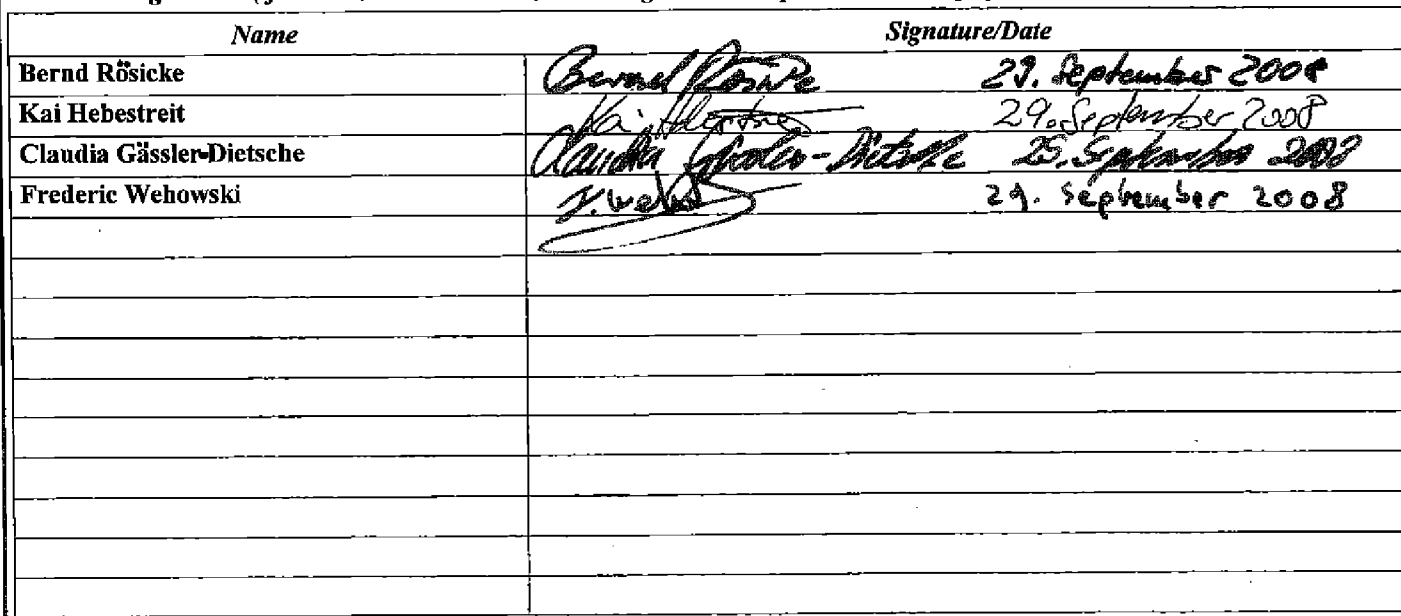 Name Signature/Date
Bernd Rösicke Bernd Rösicke 29. September 2008
Kai Hebestreit Kai 29. September 2008
Claudia Gässler-Dietsche Claudia Gässler-Dietsche 25. September 2008
Frederic Wehowski F. Wehowski 29. September 2008